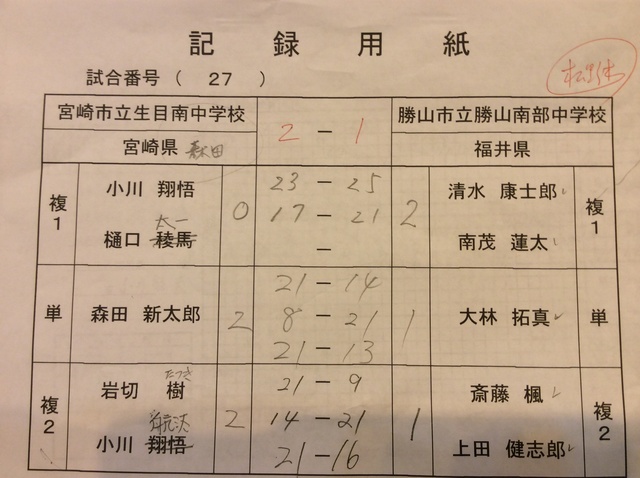 記録用紙
試合番号（ 27 ）
宮崎市立生目南中学校 2 - 1 勝山市立勝山南部中学校
宮崎県 福井県
複1 小川 翔悟 0 23 - 25 2 清水 康士郎 複1
太一 17 - 21
樋口 稜馬 - 南茂 蓮太
21 - 14
単 森田 新太郎 2 8 - 21 1 大林 拓真 単
21 - 13
たつき
複2 岩切 樹 2 21 - 9 1 斎藤 楓 複2
14 - 21
小川 翔悟 21 - 16 上田 健志郎